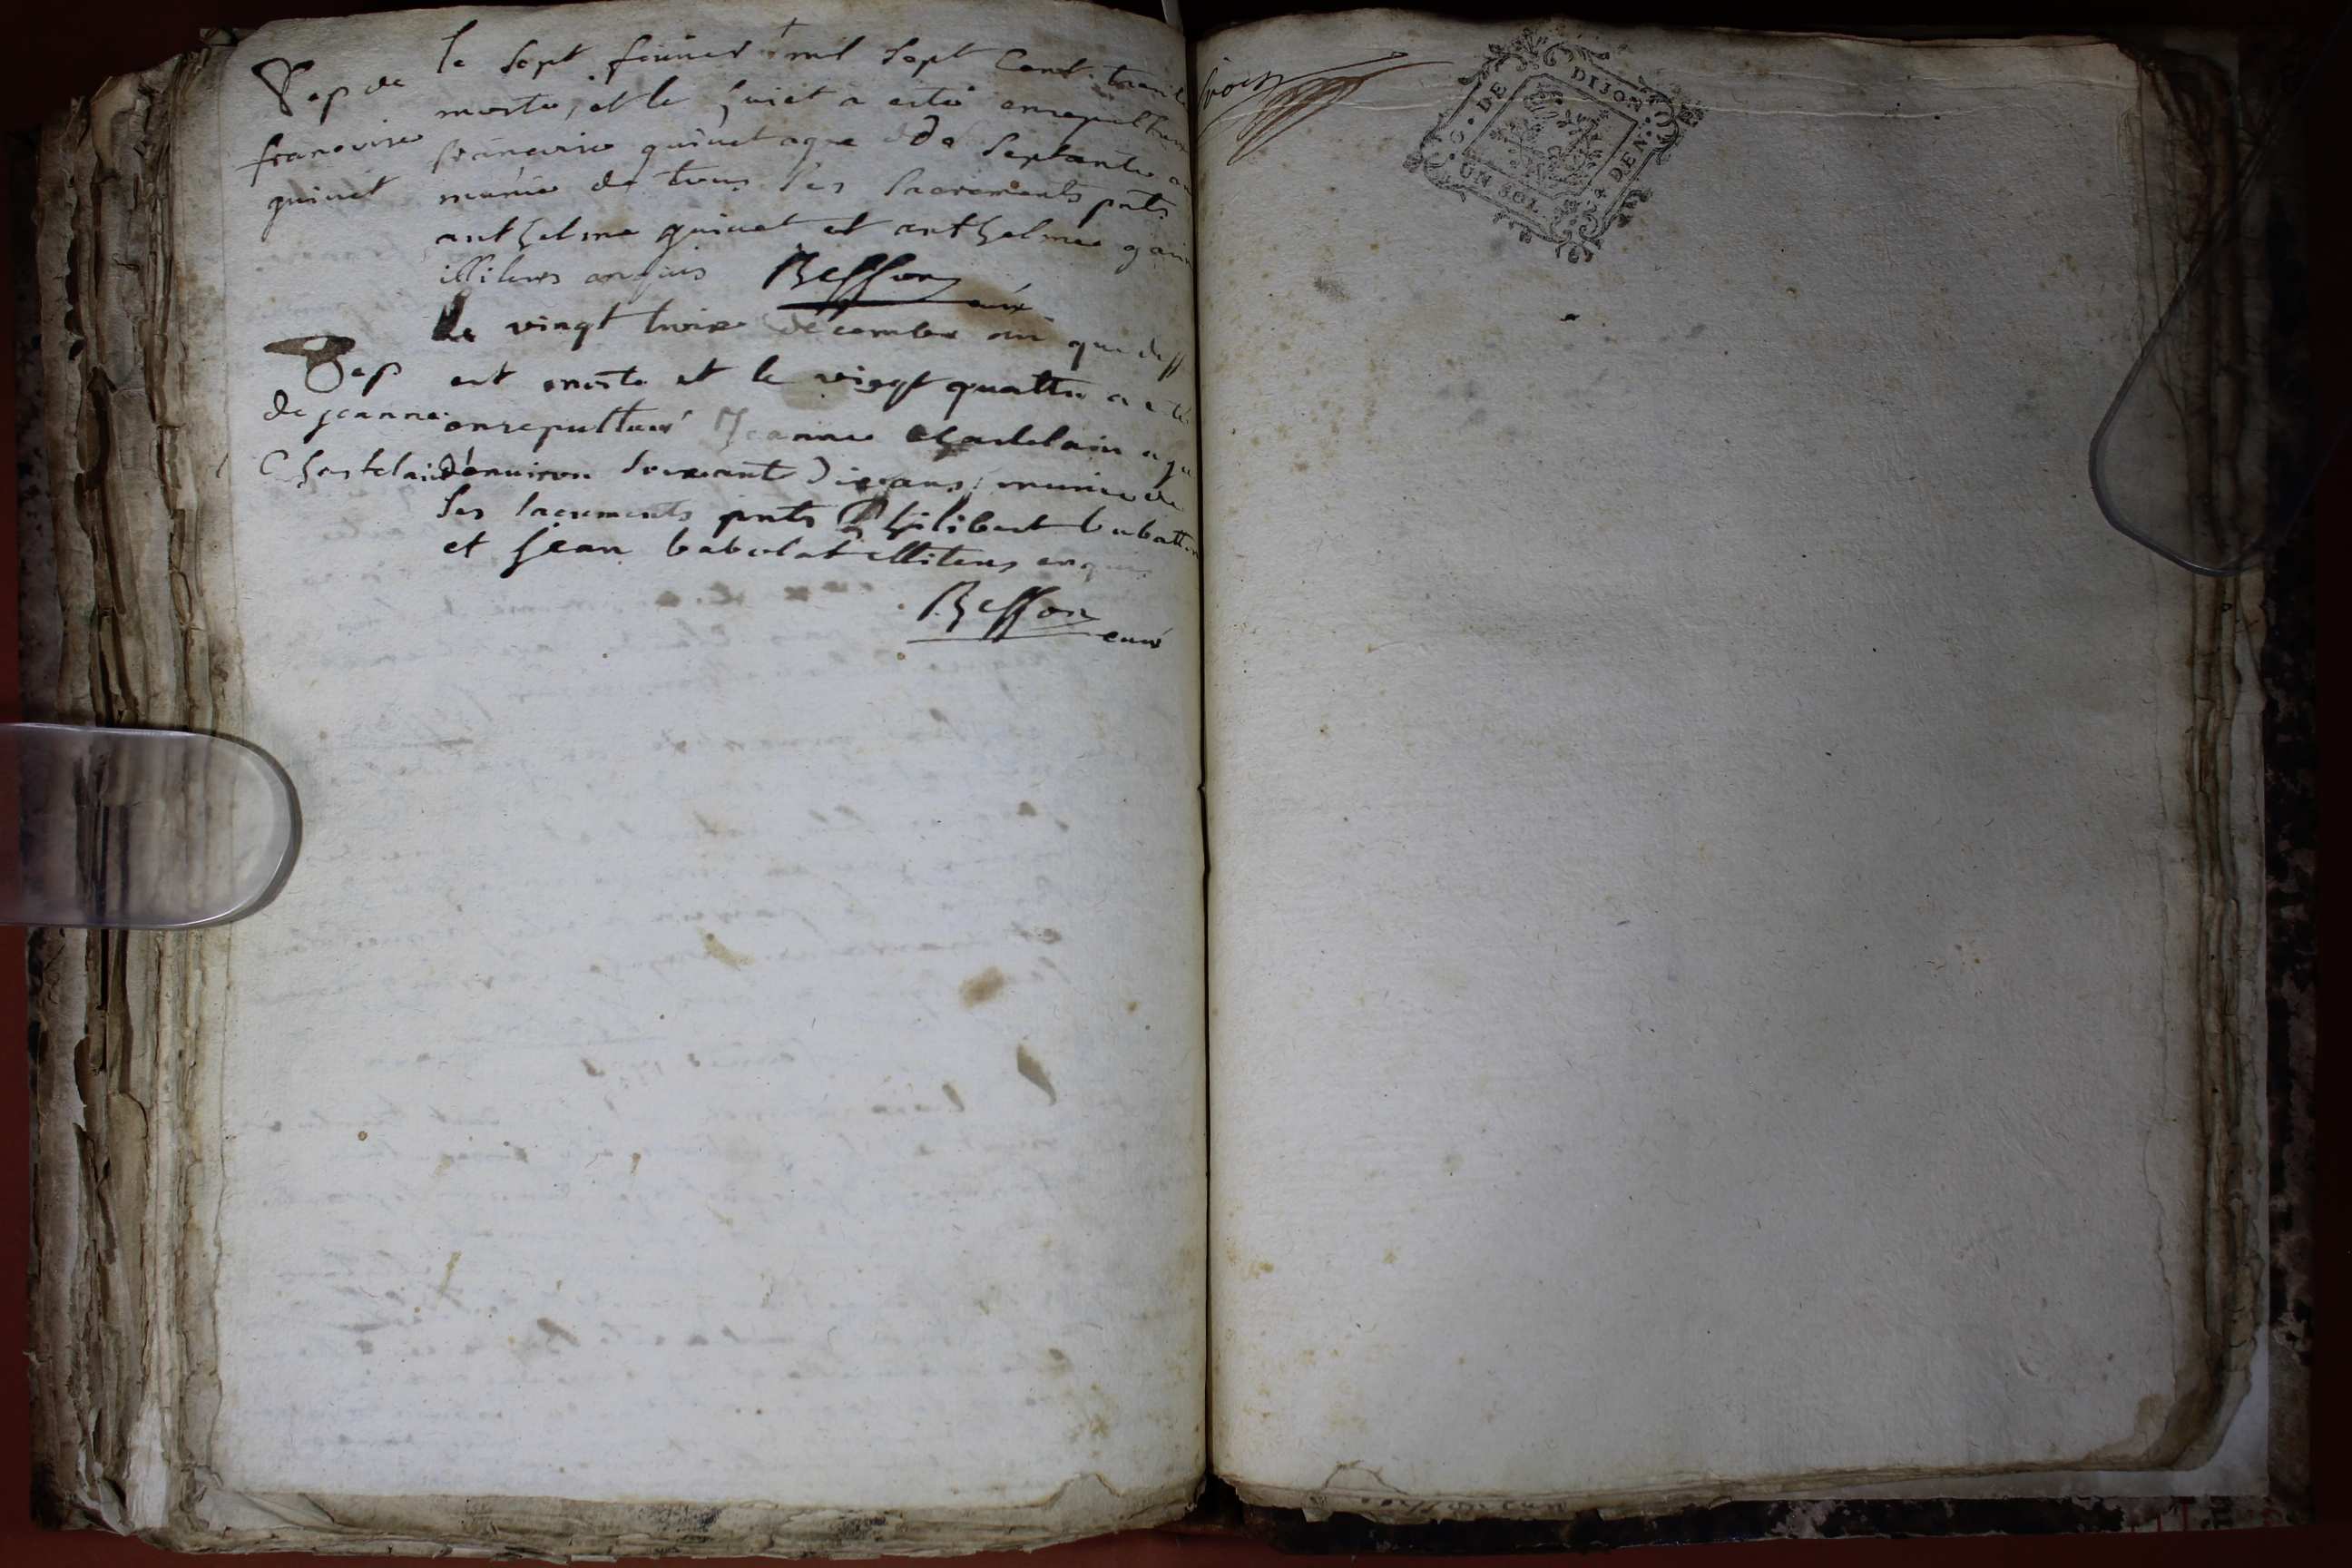 Sep de
françoise
guinet
le sept feuvier mil sept Cent trente
morte, et le huict a esté ensepulturé
françoise guinet agee de septante
munie de tous ses sacrements pnts
anthelme guinet et anthelme
illiteres enquis Besson curé
Sep
de jeanne
Chastelain
Le vingt troize decembre an que dess
est morte et le vingt quattre a eté
ensepulturé Jeanne Chastelain agé
d'enuiron soixant dix ans, munie de
ses sacrements pnts Philibert
et Jean babolat illiteres enquis
Besson
curé
G. DE DIJON
UN SOL 4 DEN.